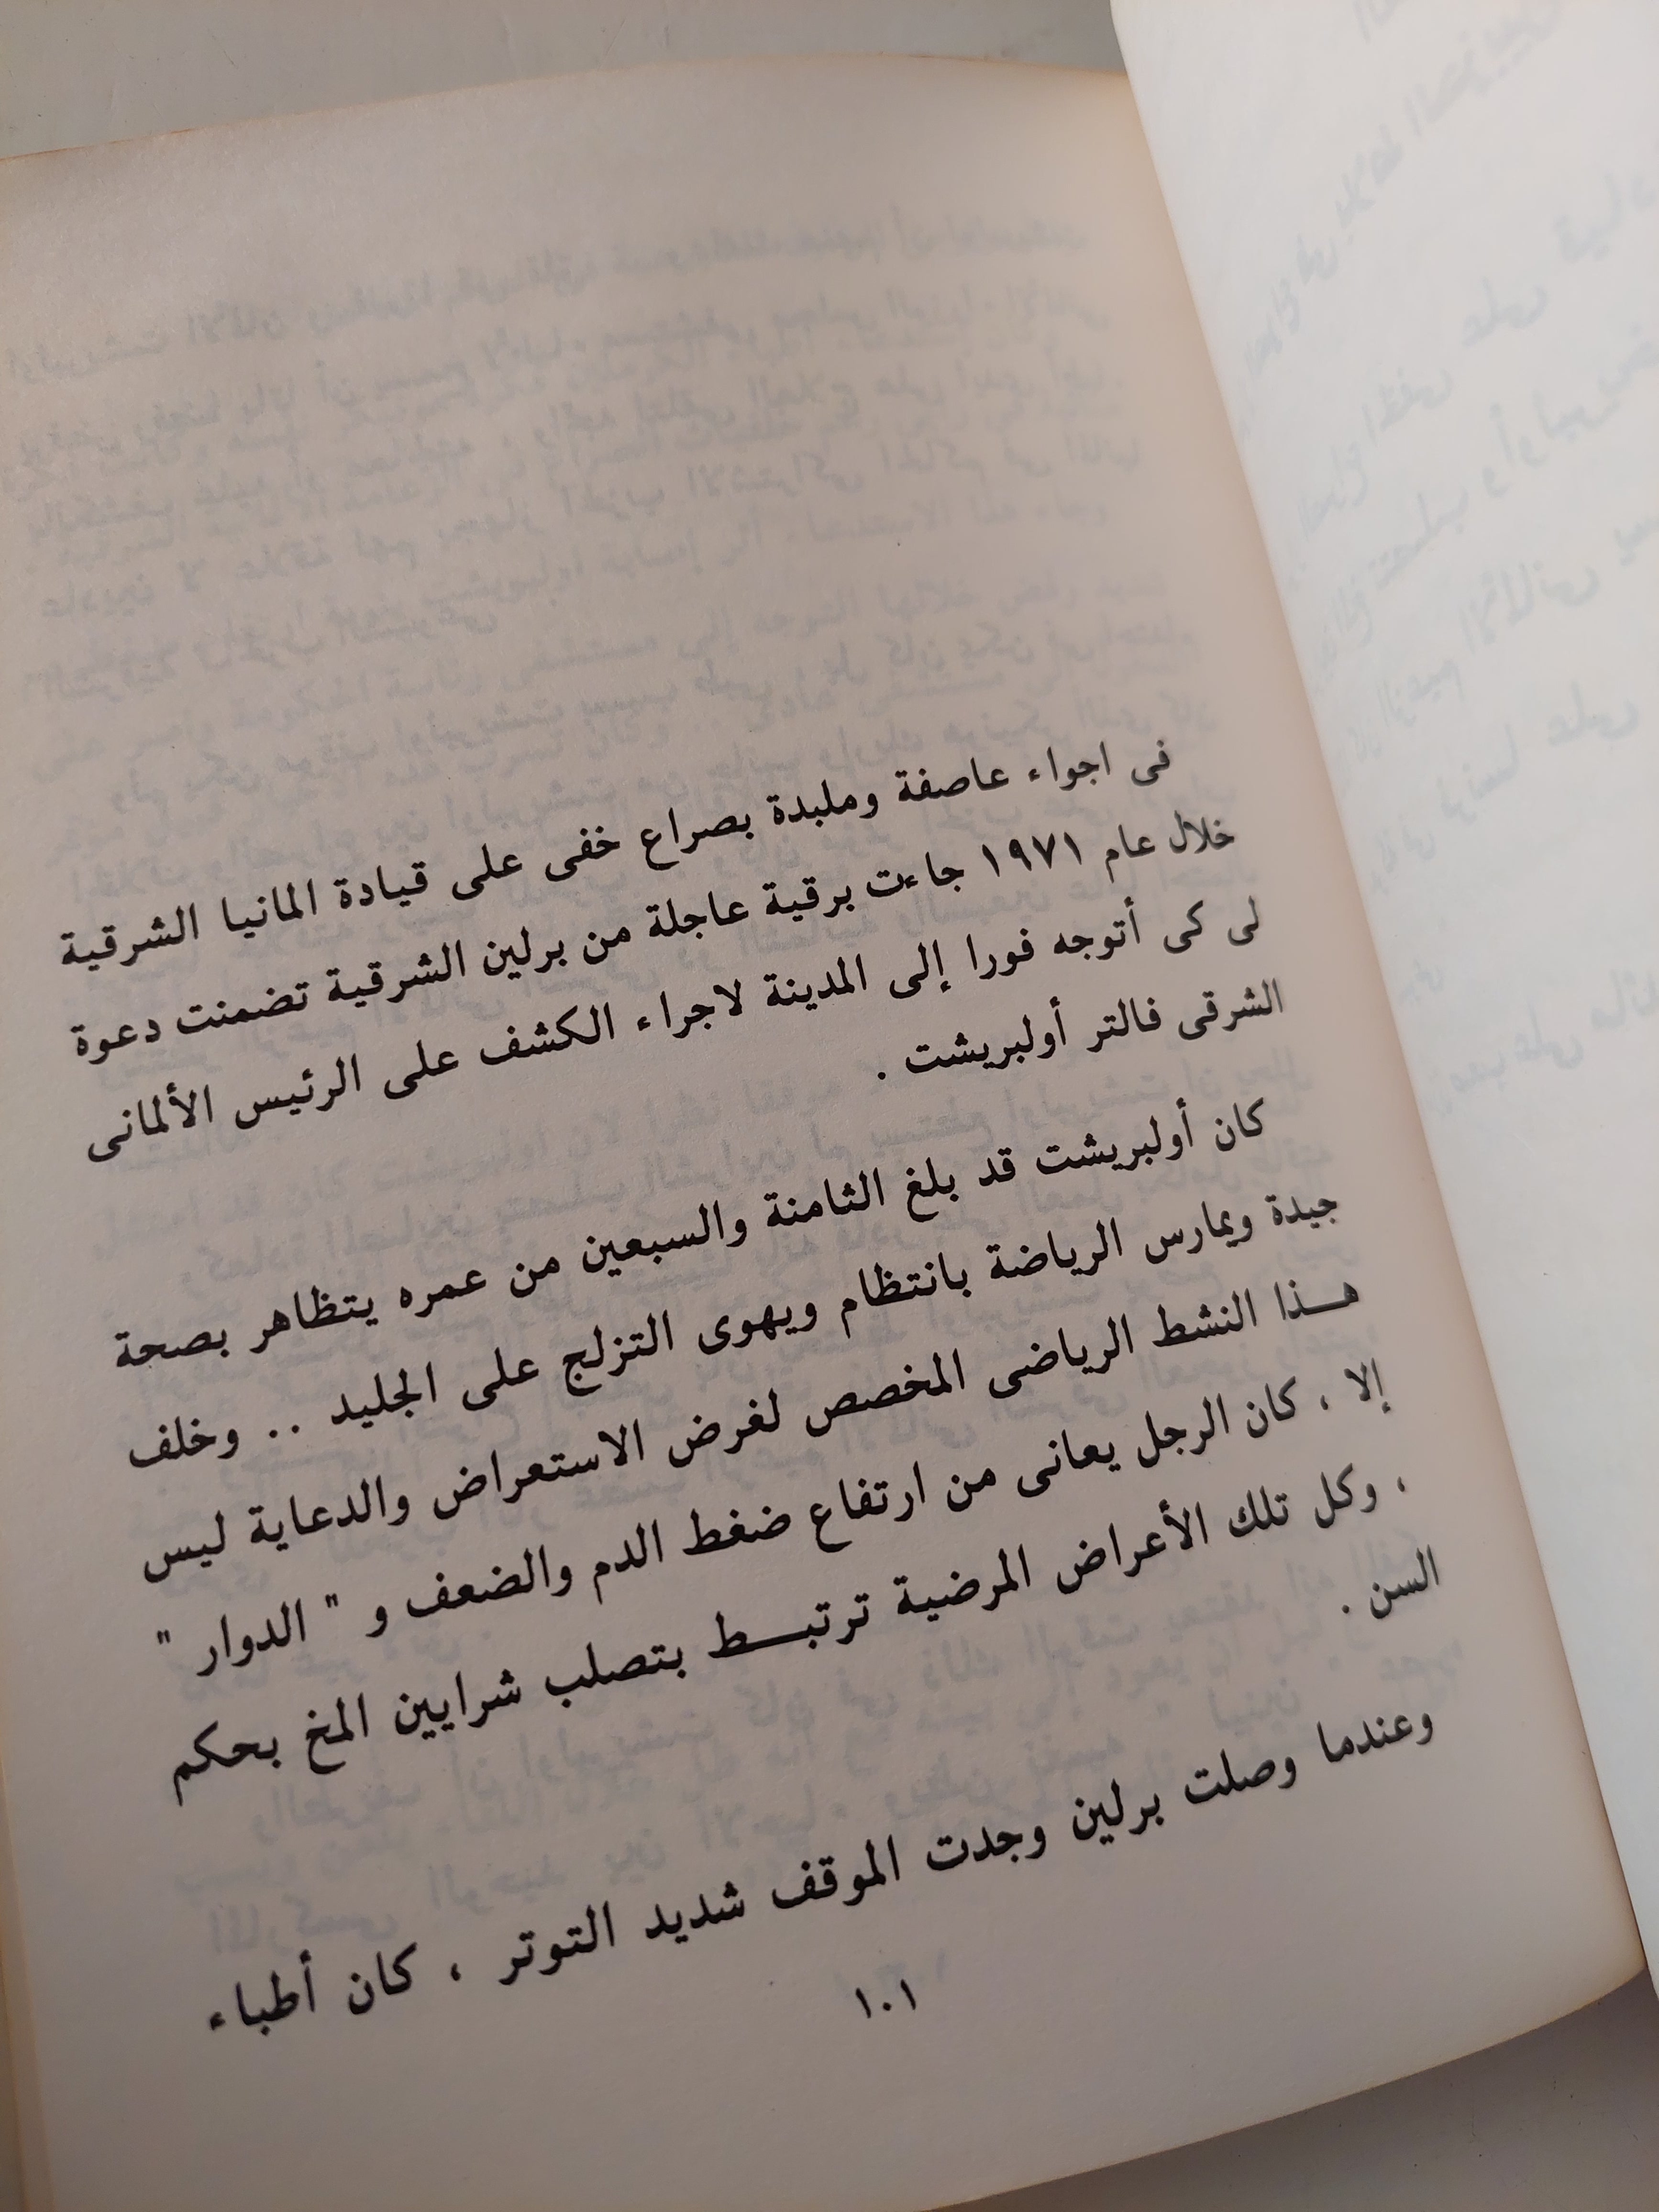 فى اجواء عاصفة وملبدة بصراع خفى على قيادة المانيا الشرقية
خلال عام ١٩٧١ جاءت برقية عاجلة من برلين الشرقية تضمنت دعوة
لى كى أتوجه فورا إلى المدينة لاجراء الكشف على الرئيس الألمانى
الشرقى فالتر أولبريشت .
كان أولبريشت قد بلغ الثامنة والسبعين من عمره يتظاهر بصحة
جيدة ويمارس الرياضة بانتظام ويهوى التزلج على الجليد .. وخلف
هـذا النشط الرياضى المخصص لغرض الاستعراض والدعاية ليس
إلا ، كان الرجل يعانى من ارتفاع ضغط الدم والضعف و " الدوار "
، وكل تلك الأعراض المرضية ترتبـــط بتصلب شرايين المخ بحكم
السن .
وعندما وصلت برلين وجدت الموقف شديد التوتر ، كان أطباء
١٠١